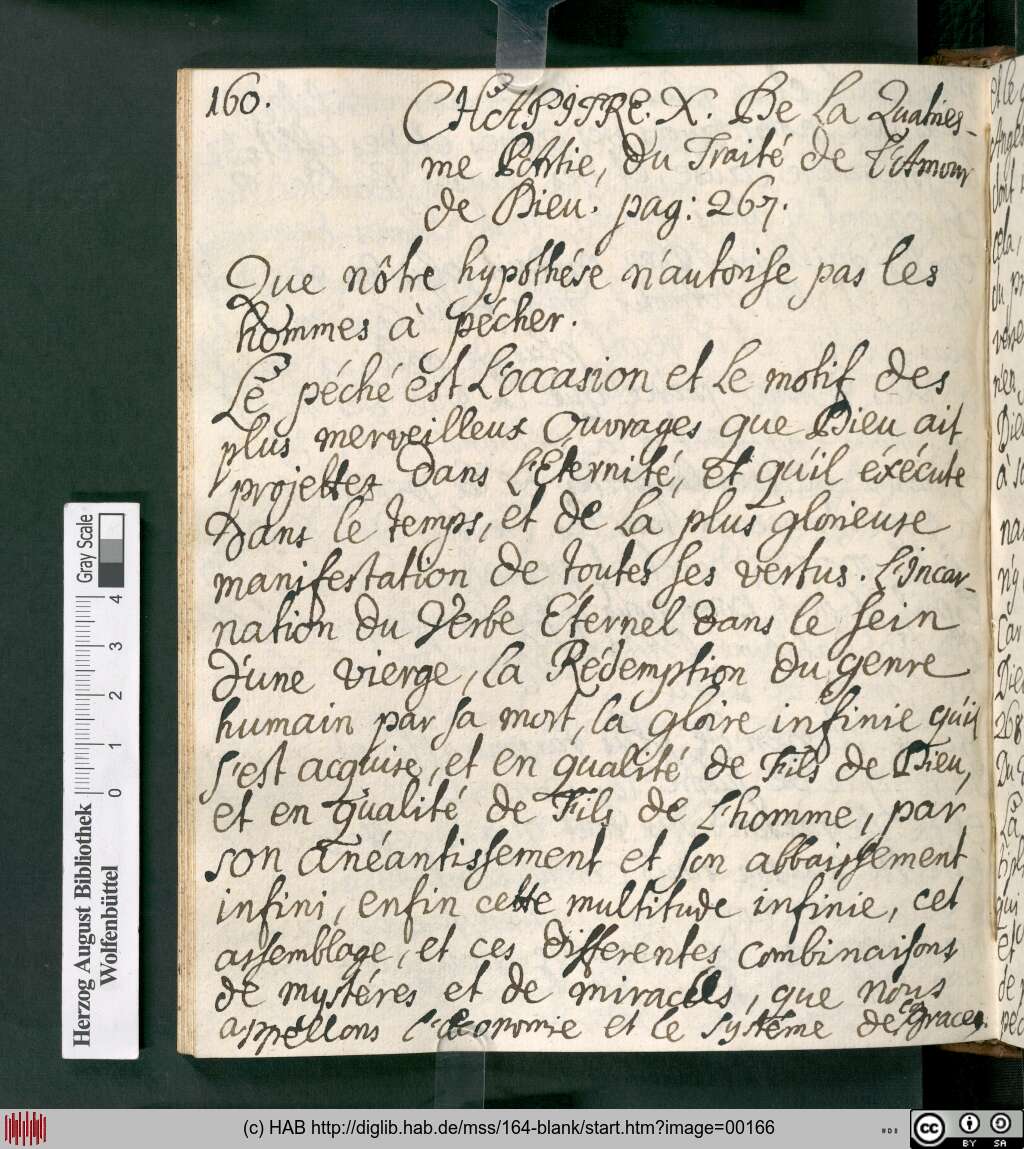 160.
CHAPITRE. X. De La Quatries-
me Partie, du Traité de L'Amour
de Dieu. pag: 267.
Que nôtre hypothése n'autorise pas les
hommes à pécher.
Le péché est L'occasion et Le motif des
plus merveilleux Ouvrages que Dieu ait
projettez dans L'Eternité, et qu'il éxécute
dans le temps, et de La plus glorieuse
manifestation de toutes ses vertus. L'Incar-
nation du Verbe Eternel dans le sein
d'une vierge, La Rédemption du genre
humain par sa mort, la gloire infinie qu'il
s'est acquise, et en qualité de Fils de Dieu,
et en qualité de Fils de L'homme, par
son anéantissement et son abbaissement
infini, enfin cette multitude infinie, cet
assemblage, et ces differentes combinaisons
de mystéres et de miracles, que nous
appéllons l'oeconomie et le système de la grace.
Herzog August Bibliothek
Wolfenbüttel
0 1 2 3 4
Gray Scale
(c) HAB http://diglib.hab.de/mss/164-blank/start.htm?image=00166
cc BY SA